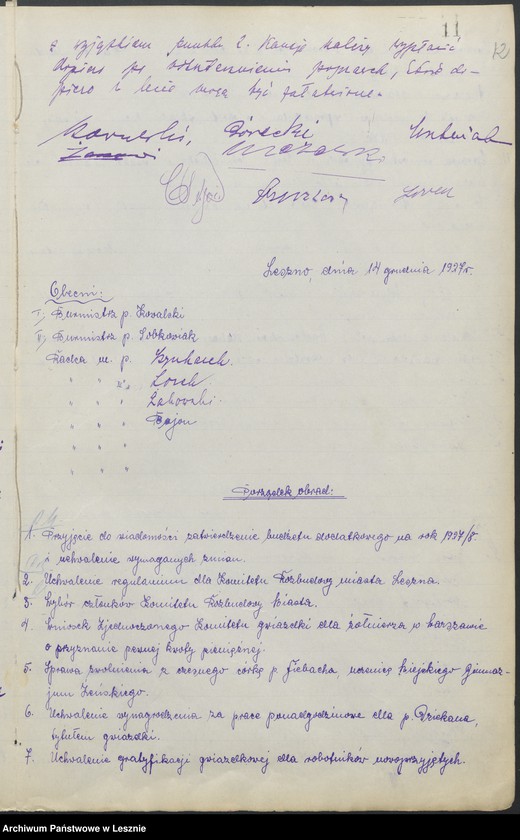 11
12
z wyjątkiem punktu 2. Kaucję należy wypłacić
dopiero po uskutecznieniu poprawek, które do-
piero w lecie mogą być załatwione.
Kowalski, Górecki
Leszno, dnia 14 grudnia 1927r.
Obecni:
I) Burmistrz p. Kowalski
II) Burmistrz p. Sobkowiak
Radca m. p.
" " " Lorch
" " " Żakowski
" " " Gajou
" " "
" " "
Porządek obrad:
1. Przyjęcie do wiadomości zatwierdzenie budżetu dodatkowego na rok 1927/8
i uchwalenie wymaganych zmian.
2. Uchwalenie regulaminu dla Komitetu Rozbudowy miasta Leszna.
3. Wybór członków Komitetu Rozbudowy Miasta.
4. Wniosek Zjednoczonego Komitetu gwiazdki dla żołnierza w Warszawie
o przyznanie pewnej kwoty pieniężnej.
5. Sprawa zwolnienia z czesnego córkę p. Fiebacha, uczenicę Miejskiego Gimnaz-
jum Żeńskiego.
6. Uchwalenie wynagrodzenia za prace ponadgodzinowe dla p. Dziekana,
tytułem gwiazdki.
7. Uchwalenie gratyfikacji gwiazdkowej dla robotników nowoprzyjętych.
Archiwum Państwowe w Lesznie